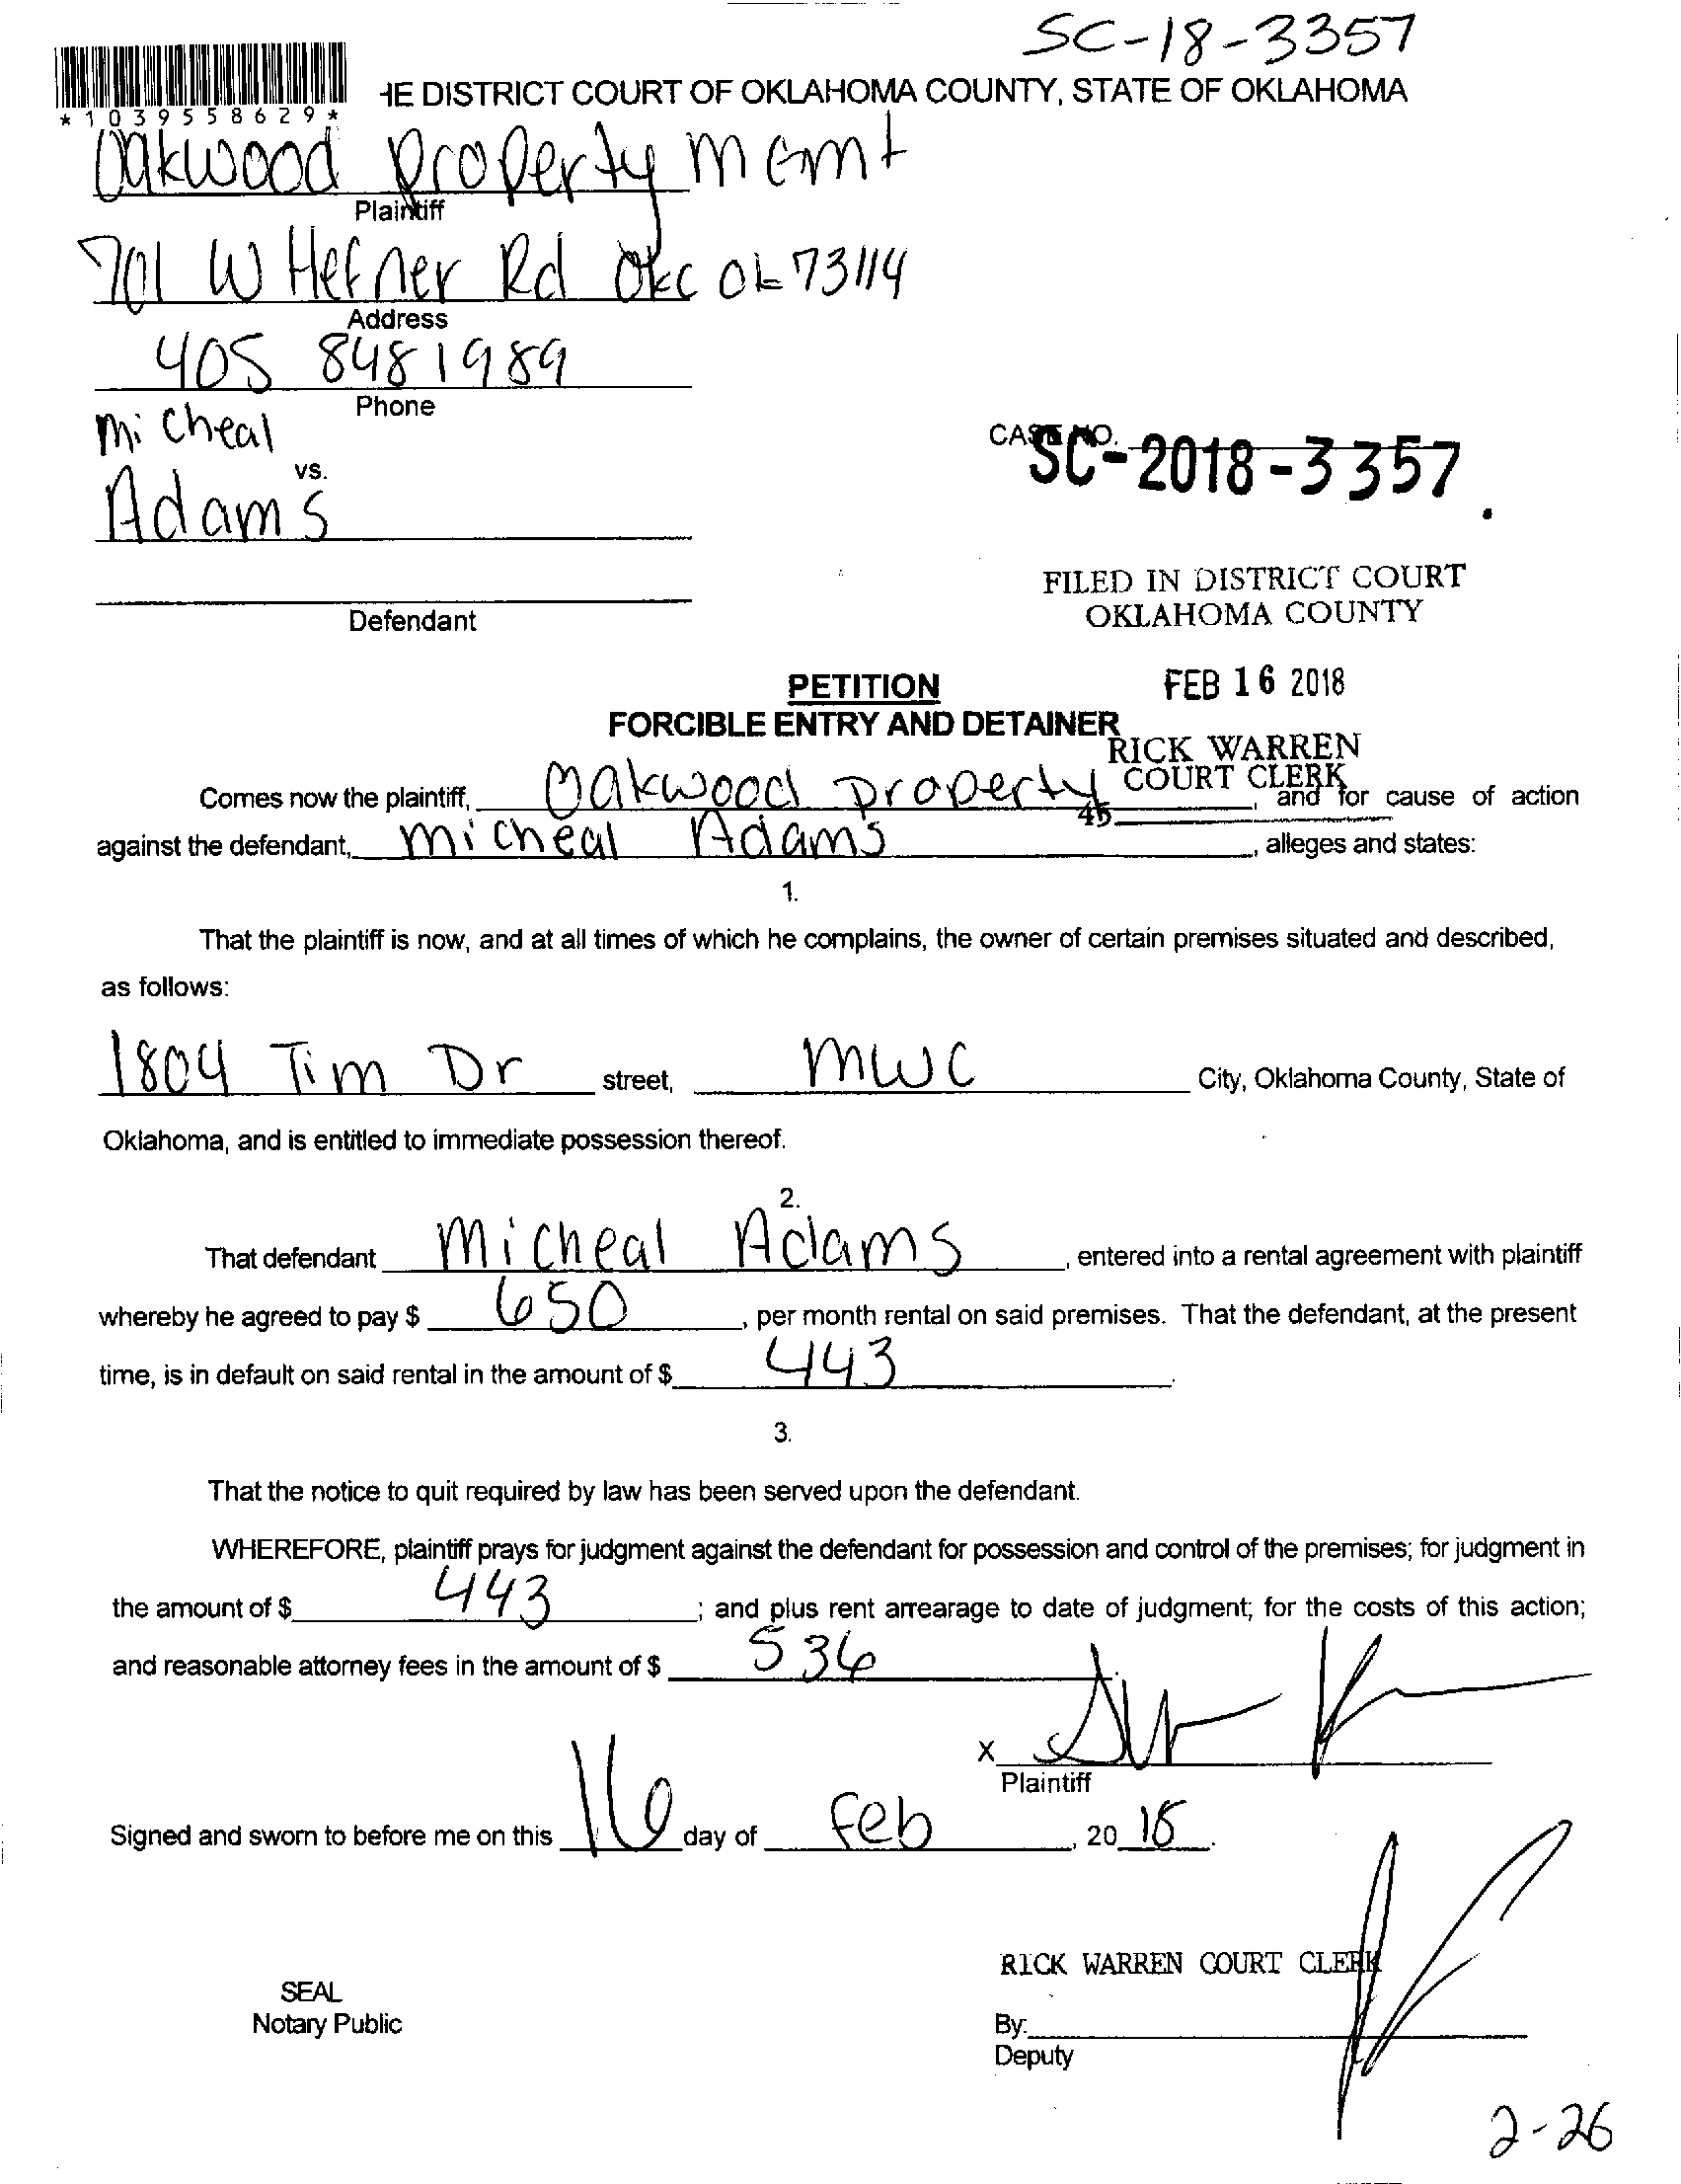 SC-18-3357
HE DISTRICT COURT OF OKLAHOMA COUNTY, STATE OF OKLAHOMA
*1039558629*
Oakwood Property MGMT
Plaintiff
701 W Hefner Rd OKC OK 73114
Address
405 848 1989
Phone
Micheal
vs.
Adams
CASE NO.
SC-2018-3357
Defendant
FILED IN DISTRICT COURT
OKLAHOMA COUNTY
FEB 16 2018
RICK WARREN
COURT CLERK
45
PETITION
FORCIBLE ENTRY AND DETAINER
Comes now the plaintiff, Oakwood Property, and for cause of action
against the defendant, Micheal Adams, alleges and states:
1.
That the plaintiff is now, and at all times of which he complains, the owner of certain premises situated and described,
as follows:
1804 Tim Dr street, MWC City, Oklahoma County, State of
Oklahoma, and is entitled to immediate possession thereof.
2.
That defendant Micheal Adams, entered into a rental agreement with plaintiff
whereby he agreed to pay $ 650, per month rental on said premises. That the defendant, at the present
time, is in default on said rental in the amount of $ 443.
3.
That the notice to quit required by law has been served upon the defendant.
WHEREFORE, plaintiff prays for judgment against the defendant for possession and control of the premises; for judgment in
the amount of $ 443; and plus rent arrearage to date of judgment; for the costs of this action;
and reasonable attorney fees in the amount of $ 536.
X
Plaintiff
Signed and sworn to before me on this 16 day of Feb, 2018.
RICK WARREN COURT CLERK
SEAL
Notary Public
By:
Deputy
2-26